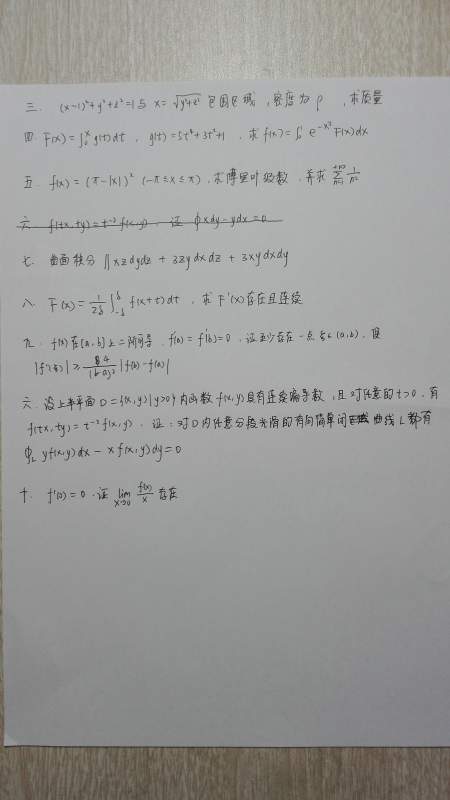 三. (x-1)²+y²+z²=1与 x=√(y²+z²) 包围区域,密度为ρ,求质量
四. F(x)=∫₀ˣ g(t)dt, g(t)=5t⁴+3t²+1, 求 f(x)=∫ e^(-x²) F(x)dx
五. f(x)=(π-|x|)² (-π≤x≤π), 求傅里叶级数, 并求 Σ 1/n²
六. f(tx,ty)=t⁻²f(x,y), 证 ∮xdy-ydx=0
七. 曲面积分 ∬xzdydz + 3zydxdz + 3xydxdy
八. F(x)=1/(2δ)∫_(-δ)^δ f(x+t)dt, 求 F'(x)存在且连续
九. f(x)在[a,b]上二阶可导, f'(a)=f'(b)=0, 证至少存在一点ξ∈(a,b), 使
|f''(ξ)|≥ 4/(b-a)² |f(b)-f(a)|
六. 设上半平面D={(x,y)|y>0}内函数f(x,y)具有连续偏导数,且对任意的t>0,有
f(tx,ty)=t⁻²f(x,y). 证:对D内任意分段光滑的有向简单闭曲线L都有
∮_L yf(x,y)dx-xf(x,y)dy=0
十. f'(0)=0. 证 lim_(x→0) f(x)/x 存在